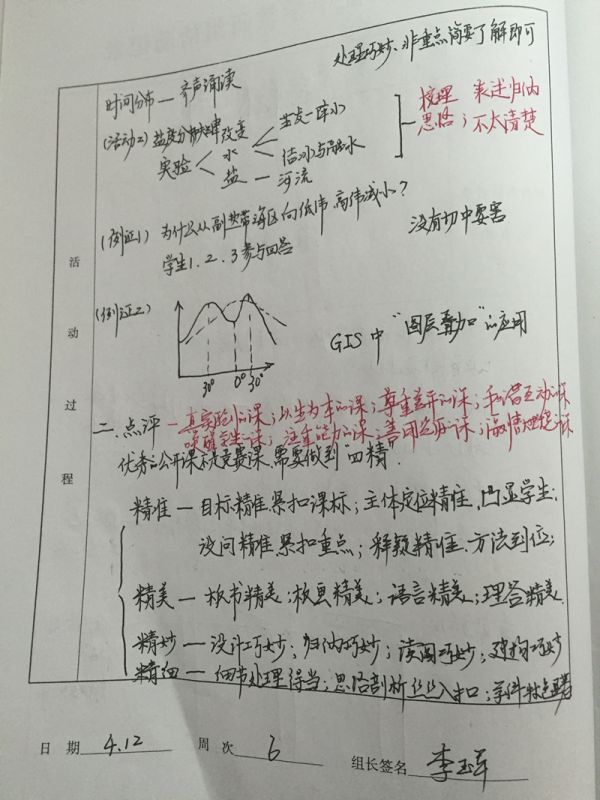 处理巧妙、非重点简要了解即可
时间分布 — 齐声诵读
(活动2) 盐度分布规律改变
实验 水 结冰与融水
盐 — 河流
梳理 表述归纳
思路；不太清楚
(例证1) 为什么从副热带海区向低纬、高纬减小？
学生1、2、3参与回答
没有切中要害
(例证2)
GIS中"图层叠加"的应用
30° 0° 30°
活动过程
二、点评 — 真实验的课；以生为本的课；尊重差异的课；互动的课
注重能力的课；善用
优秀的公开课 竞赛课、需要做到"四精"
精准 — 目标精准、紧扣课标；主体定位精准、凸显学生；
设问精准、紧扣重点；释疑精准、方法到位；
精美 — 板书精美；板画精美；语言精美；理答精美
精妙 — 设计巧妙；归纳巧妙；读图巧妙；建构巧妙
精细 — 细节处理得当；思路剖析丝丝入扣；学科特色
日 期 4.12 周 次 6 组长签名 李玉军